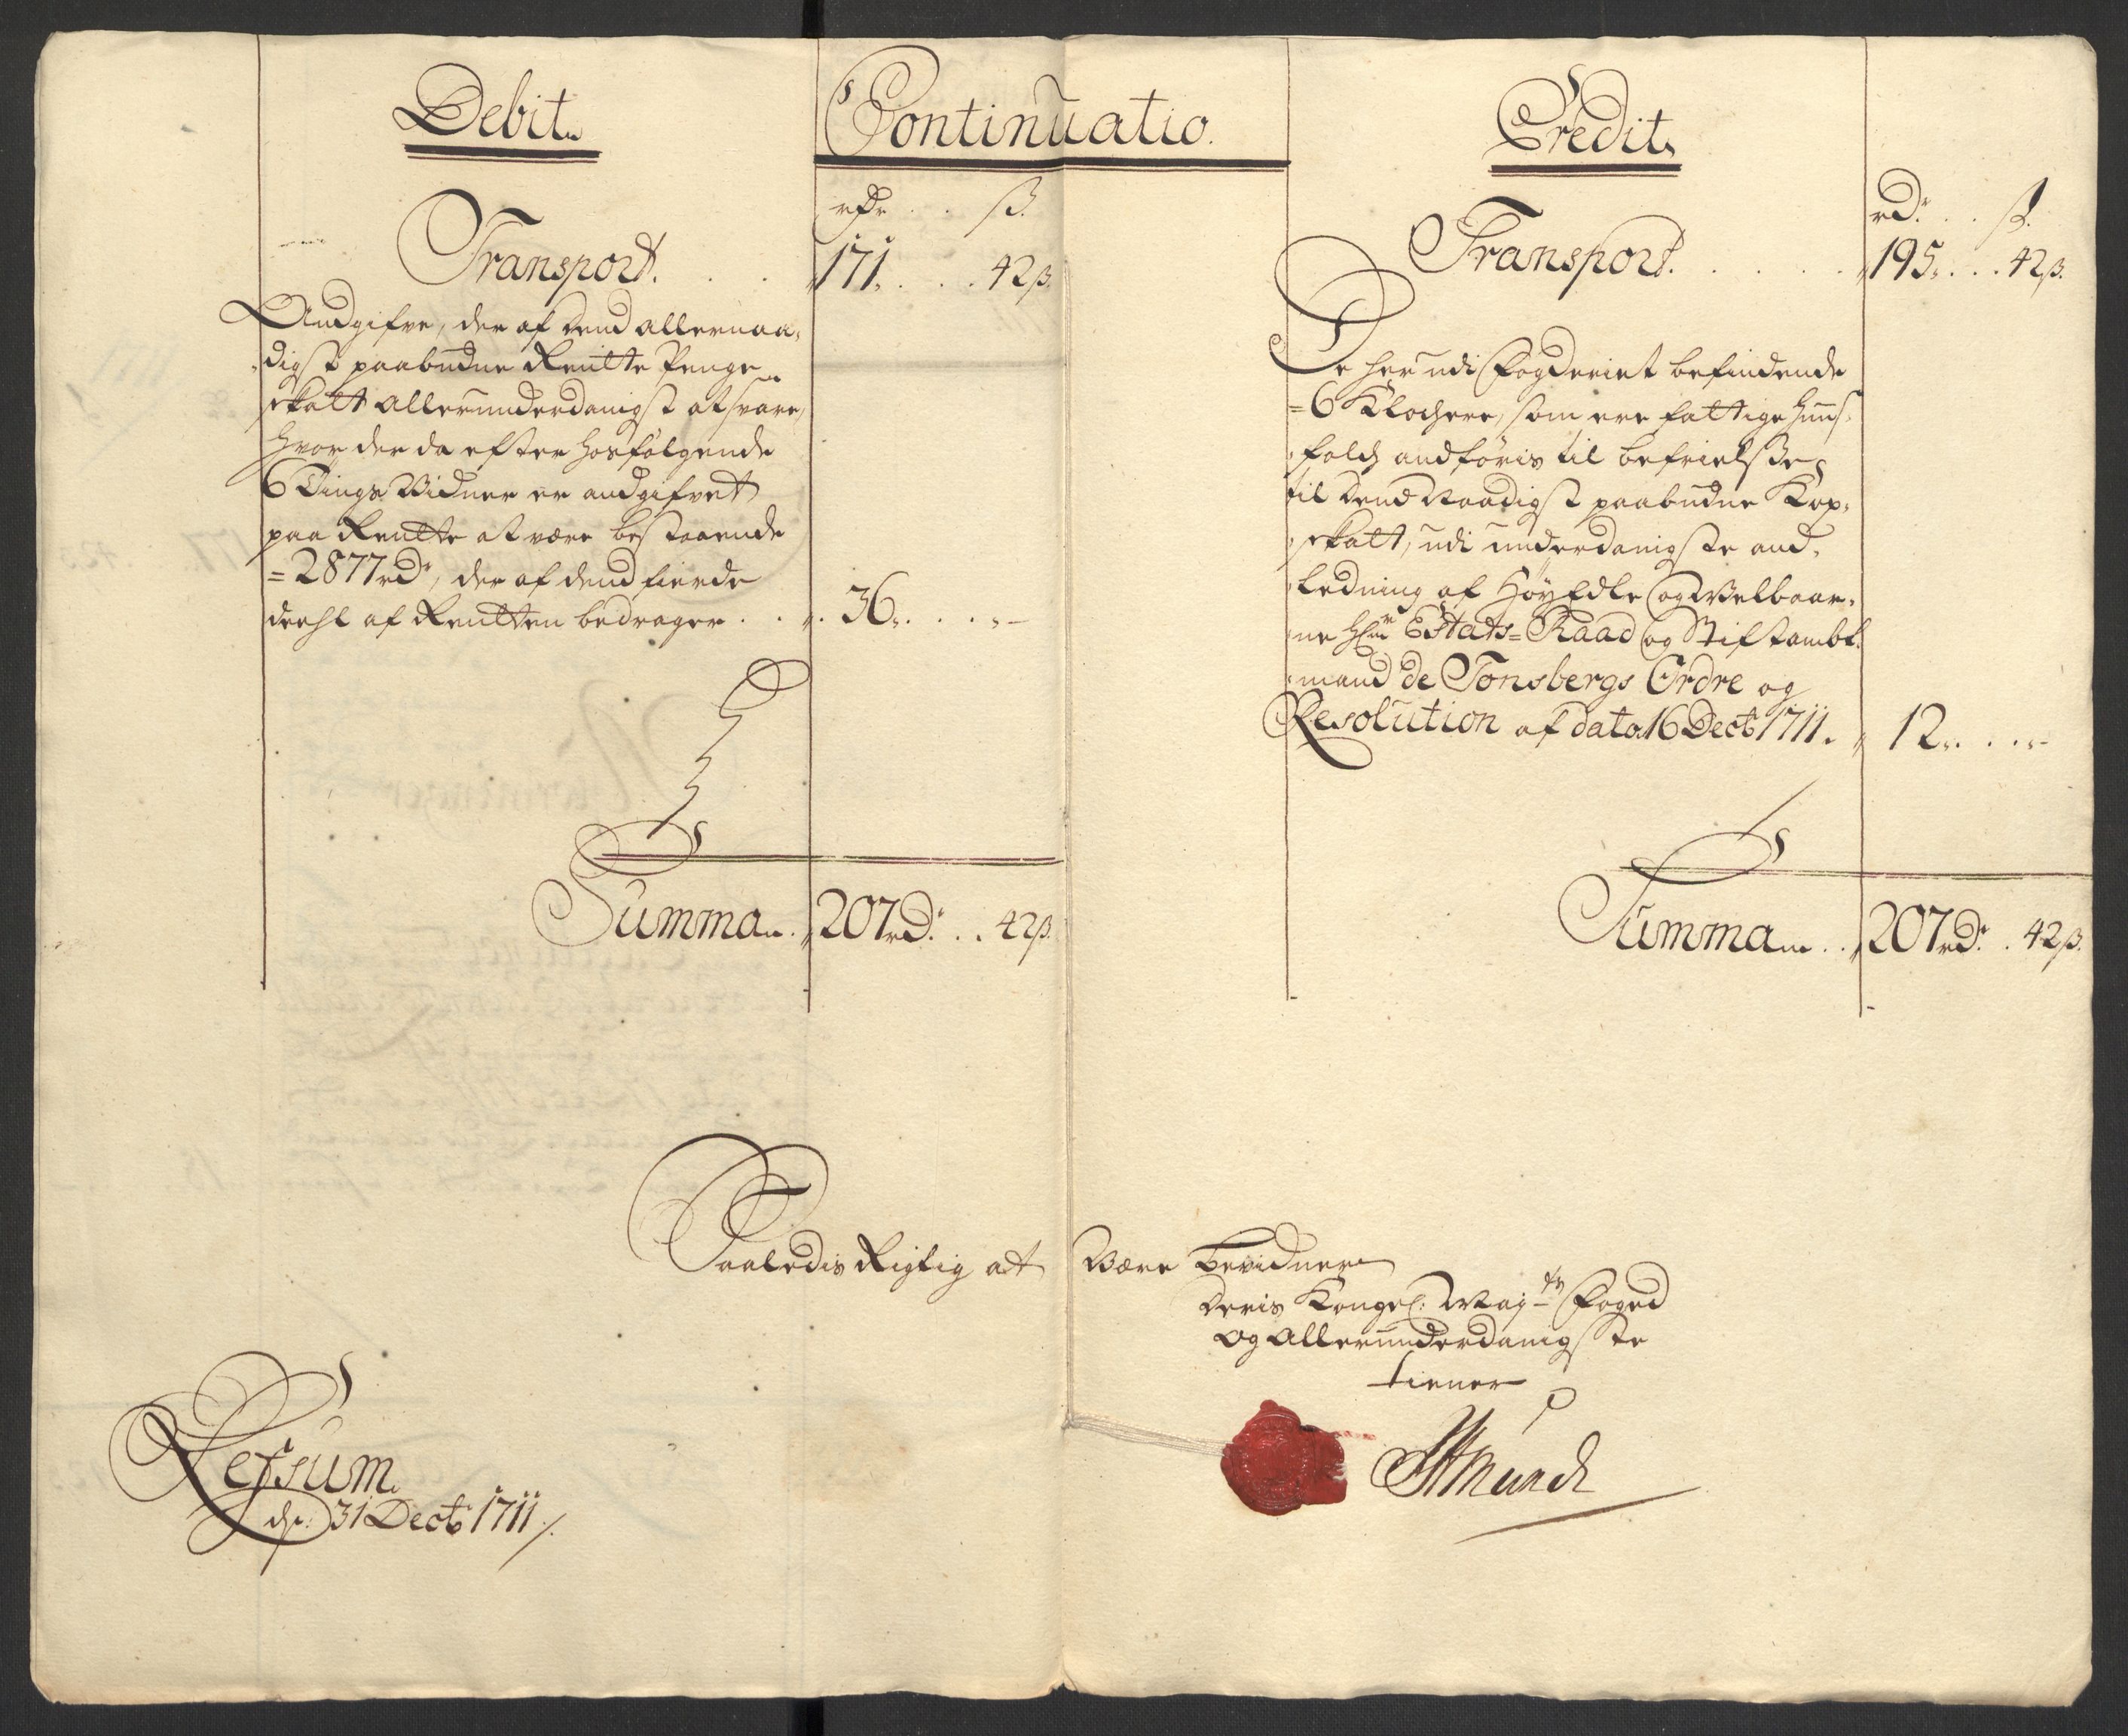 Debit.
Continuatio.
Credit.
rdr. . . ß.
Transport. . . 171. . . . 42ß.
Andgifve, der af dend allernaa,
digst paabudne Rentte Penge
skatt allerunderdanigst at svare,
hvor der da efter hosfølgende
6 Tings Vidner er andgifvet
paa Rentte at være bestaaende
=2877rdr, der af dend fierde
deehl af Rentten bedrager . . . 36. . . . . -
Summa. . 207rdr. . . 42ß.
rdr. . . ß.
Transport. . . . . 195. . . . 42ß.
De her udi Fogderiet befindende
=6 Klochere, som ere fattige huus,
folch andføris til befrielse
til dend Naadigst paabudne Kop,
skatt, udi underdanigste and,
ledning af Høy Edle og Velbaar,
ne Hr Estats=Raad og Stiftambt
mand de Tonsbergs Ordre og
Resolution af dato 16 Decb 1711. 12. . . . -
Summa . . 207rdr. . 42ß.
Saaledis Rigtig at Være bevidner
Deris Kongel: Maytts Foged
og allerunderdanigste
tiener
Refsum
d: 31 Decb 1711.
Munch